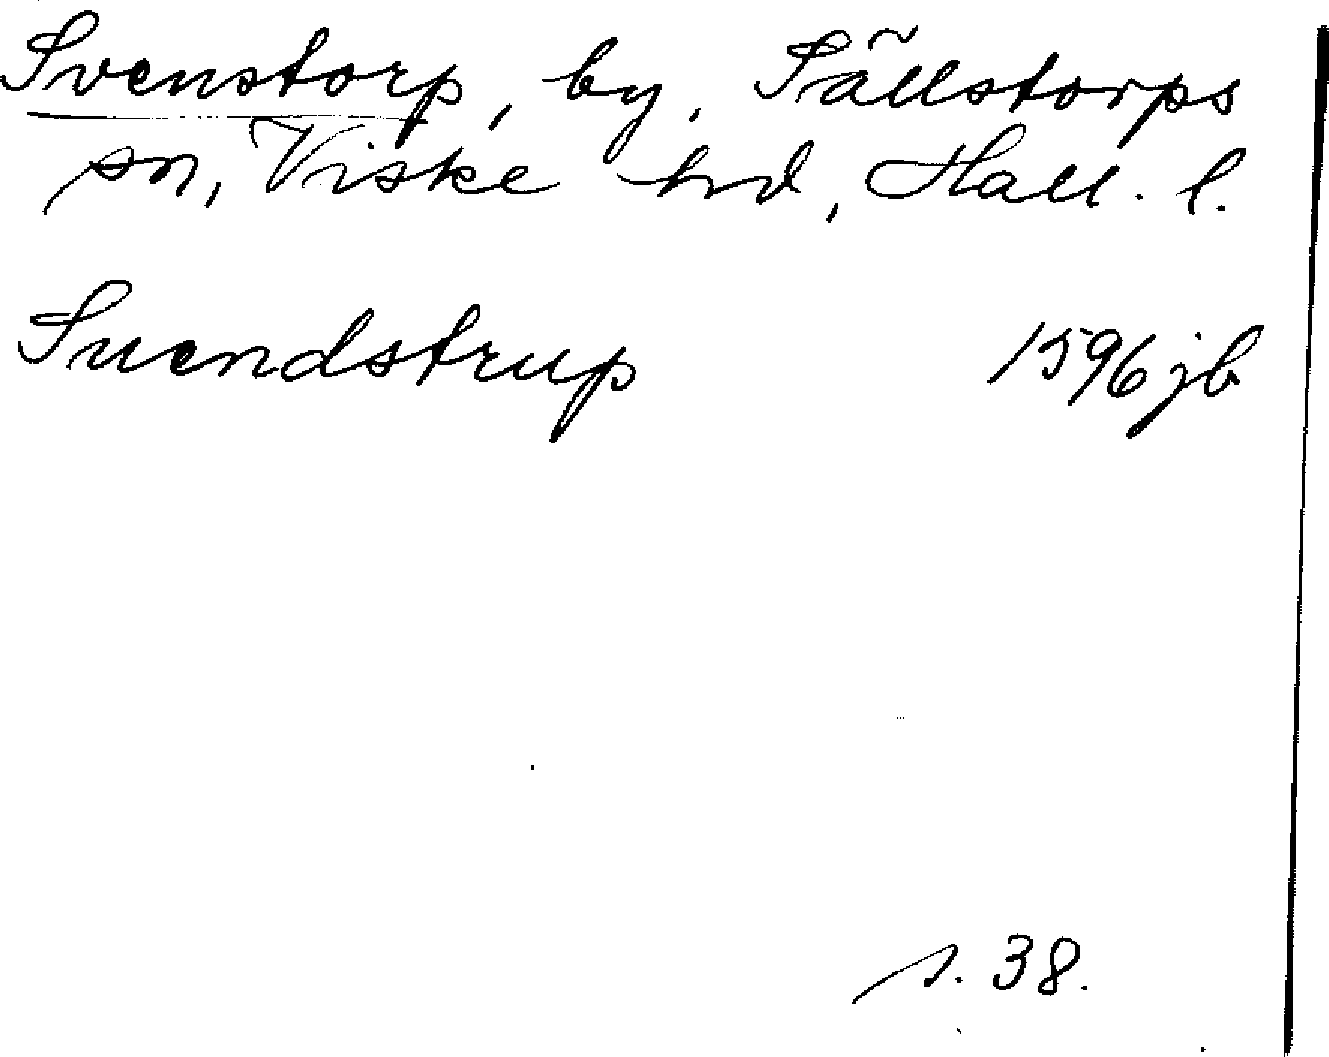 Svenstorp, by, Sällstorps
sn, Viske hd, Hall. l.
Suendstrup 1596 jb
s. 38.